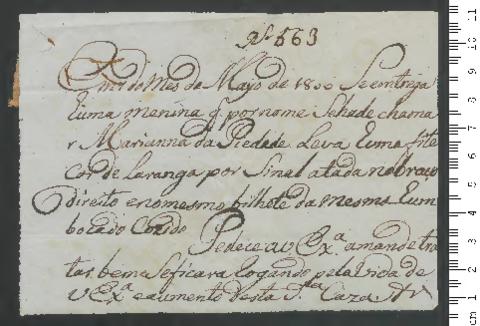 Nº 563
do Mes de Mayo de 1800 Se entrega
huma menina q. por nome Sehade chama
r Marianna da Piedade Leva huma fite
Cor de Laranga por Sinal atada no braço
direito e no mesmo bilhete da mesma hum
bocado Cozido Pedece a V Ex.ª a mande tra
tar bem a Se ficara Rogando pela Vida de
V Ex.ª e aumento desta S.ta Caza